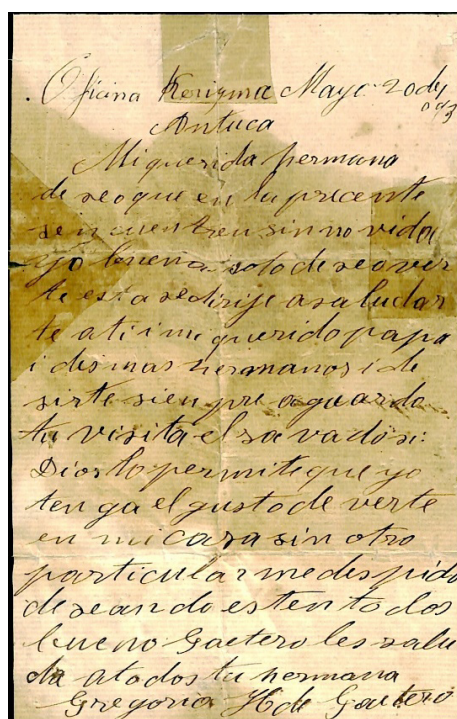 Oficina Kerigma Mayo 20 de
903
Antuca
Mi querida hermana
deseo que en la precente
se incuentren sin novida
yo buena solo deseo ver
te esta se dirije a saludar
te a ti i mi querido papa
i dismas hermanos i de
sirte sienpre aguardo
tu visita el savado si:
Dios lo permite que yo
tenga el gusto de verte
en mi casa sin otro
particular me despido
deseando esten todos
bueno Gaetero les salu
da a todos tu hermana
Gregoria H de Gaetero